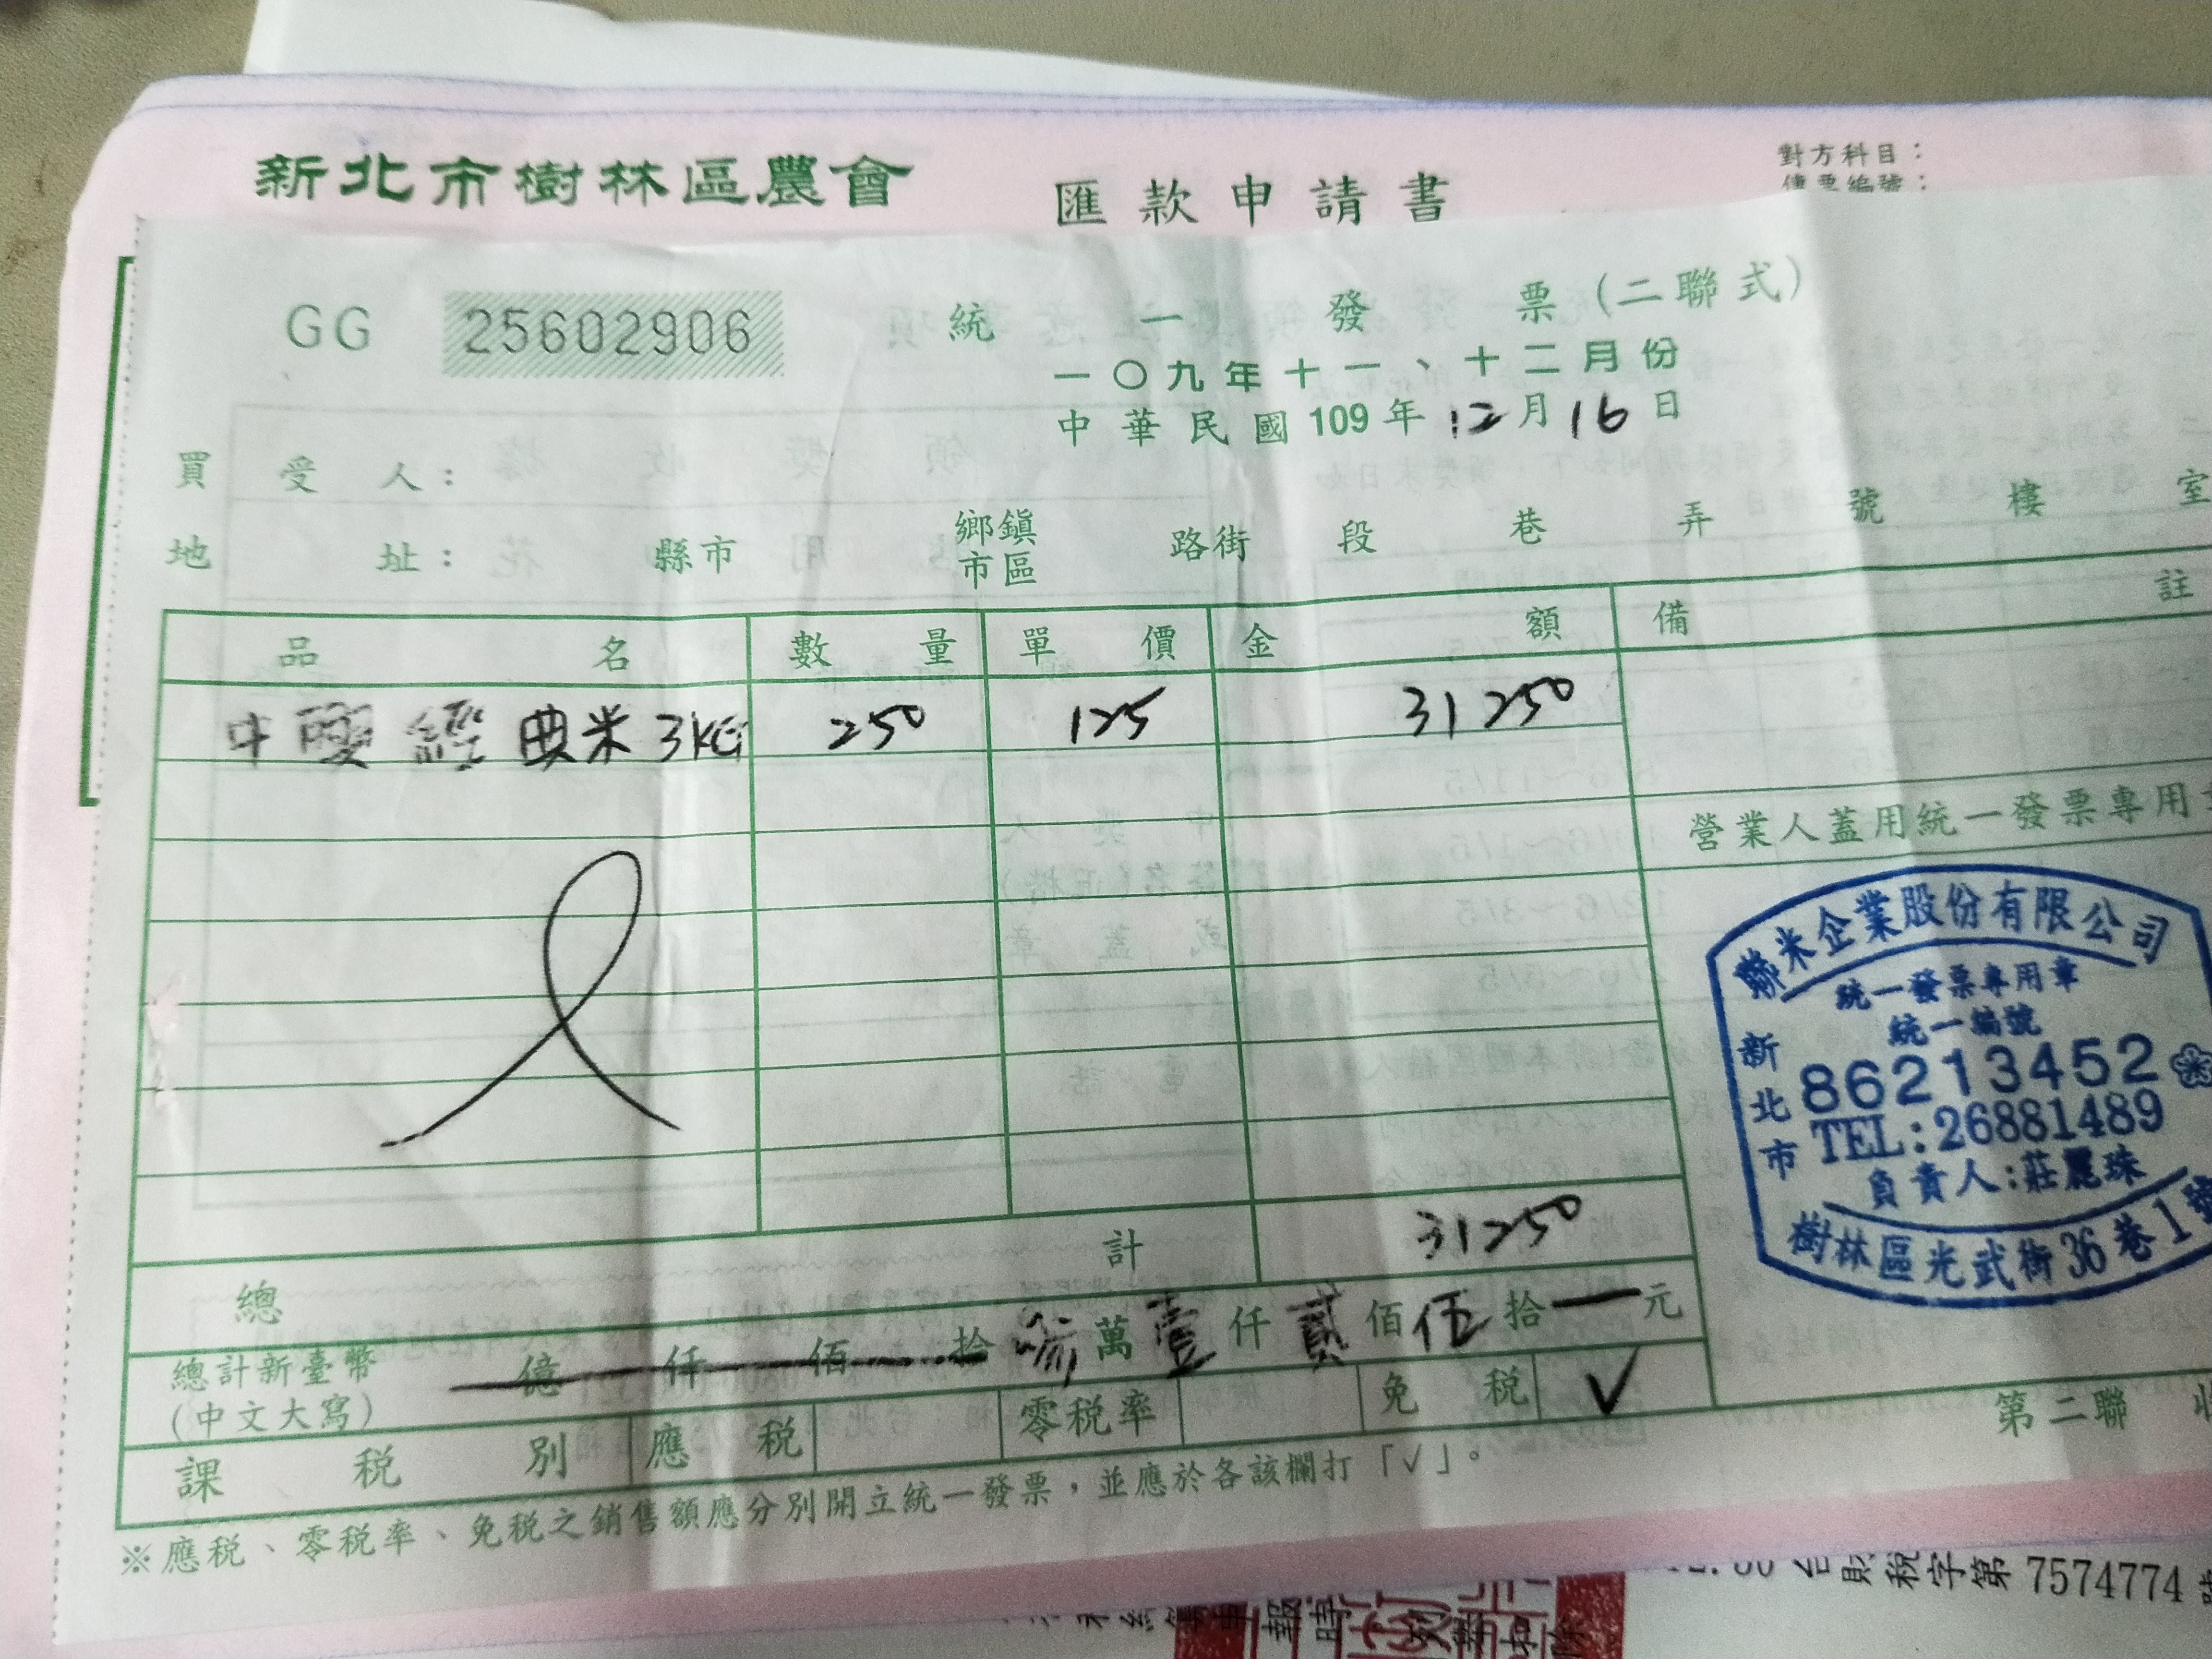 新北市樹林區農會 匯款申請書
對方科目：
傳票編號：
GG 25602906 統一發票(二聯式)
一〇九年十一、十二月份
中華民國109年12月16日
買受人：
地址： 縣市 鄉鎮市區 路街 段 巷 弄 號 樓 室
品名 數量 單價 金額 備註
中興經典米3KG 250 125 31250
營業人蓋用統一發票專用
聯米企業股份有限公司
統一發票專用章
統一編號
新北市
86213452
TEL:26881489
負責人:莊麗珠
樹林區光武街36巷1號
總計 31250
總計新臺幣 億 仟 佰 拾 參萬壹仟貳佰伍拾 元
(中文大寫)
課稅別 應稅 零稅率 免稅 √
第二聯
※應稅、零稅率、免稅之銷售額應分別開立統一發票，並應於各該欄打「√」。
台財稅字第7574774